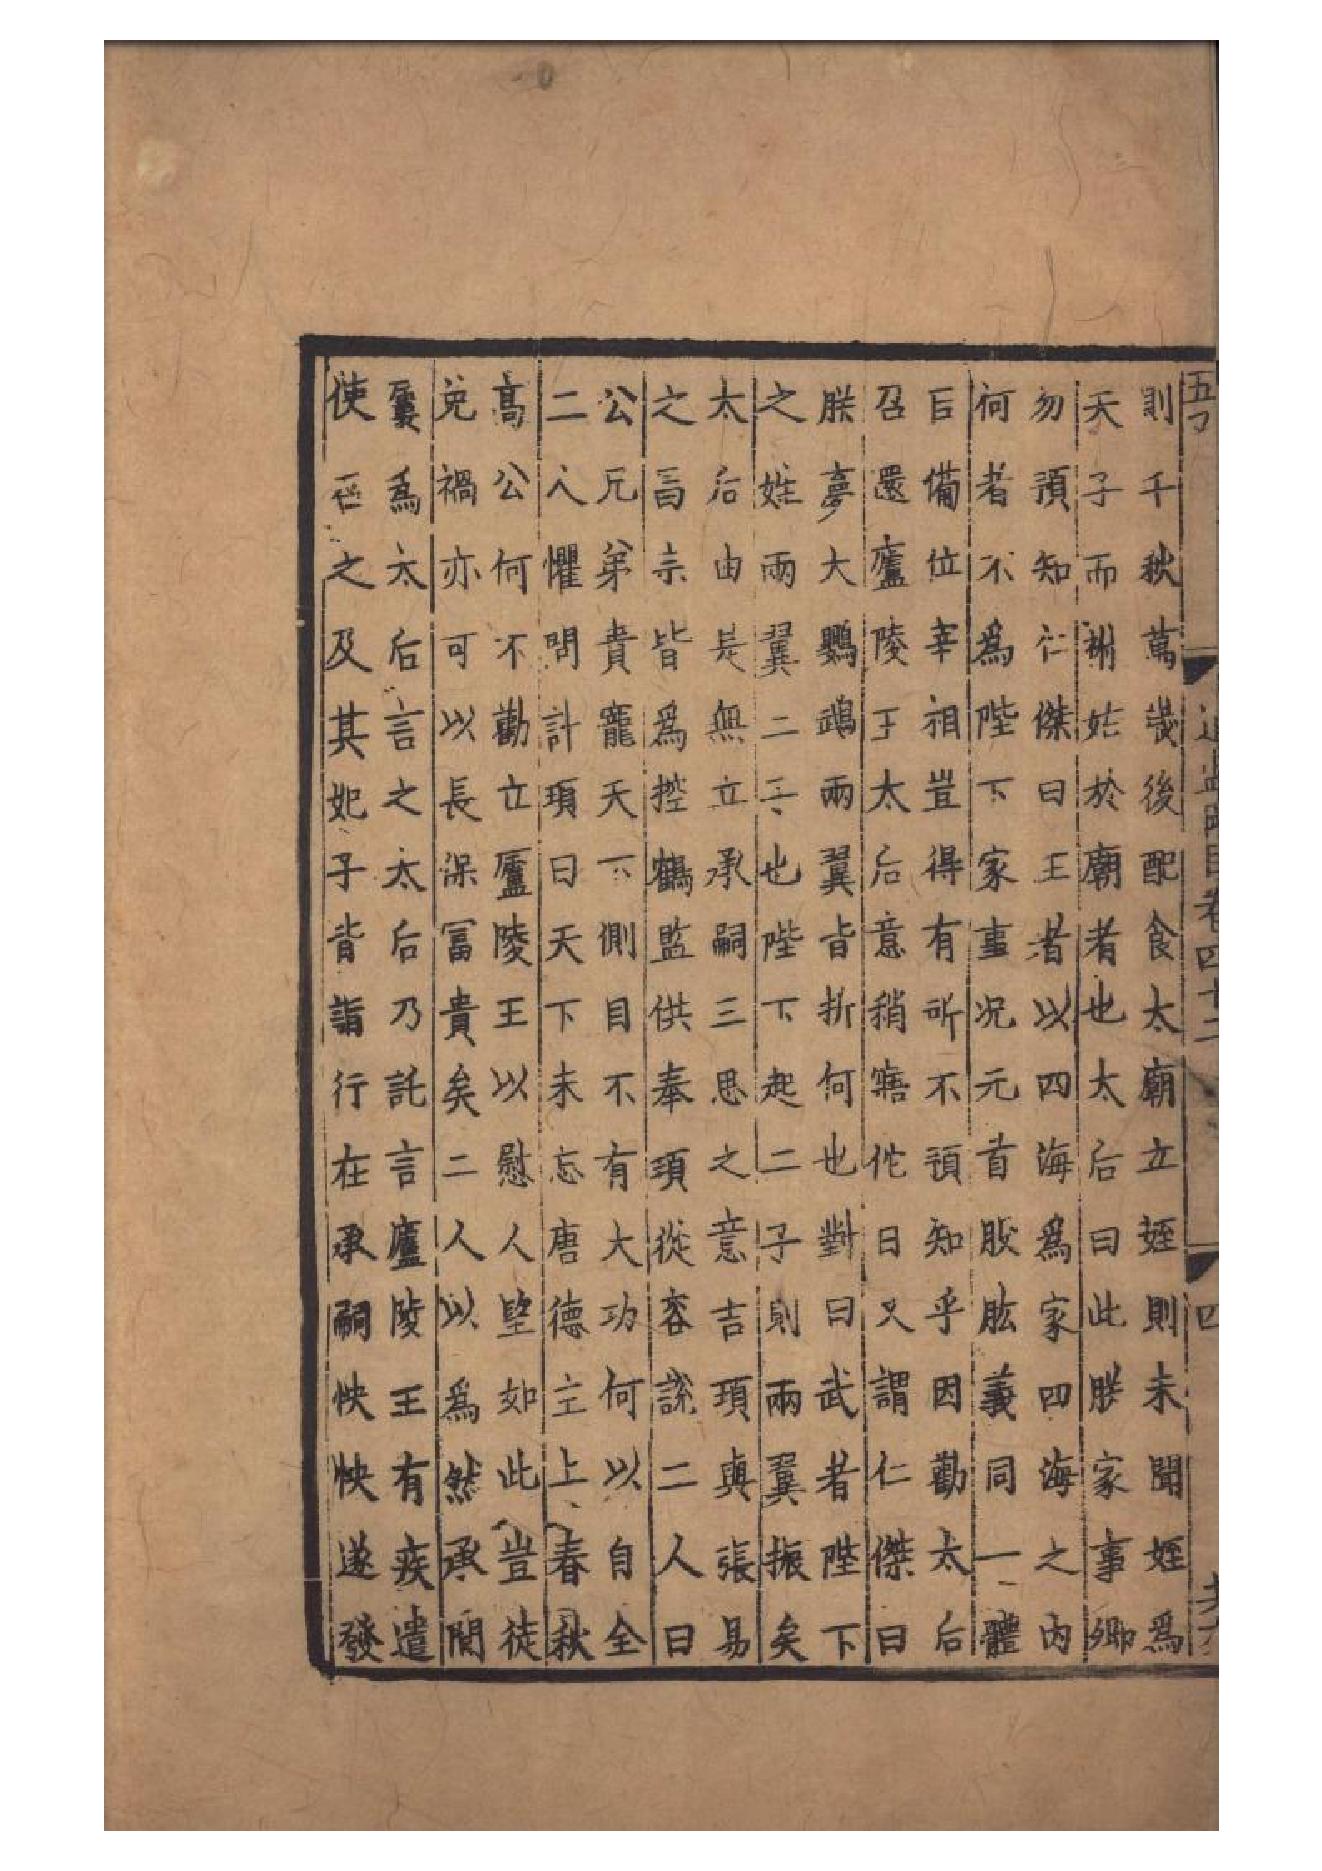 卷四十二 四
則千秋萬歲後配食太廟立姪則未聞姪爲
天子而祔姑於廟者也太后曰此朕家事卿
勿預知仁傑曰王者以四海爲家四海之內
何者不爲陛下家事况元首股肱義同一體
臣備位宰相豈得有所不預知乎因勸太后
召還廬陵王太后意稍寤佗日又謂仁傑曰
朕夢大鸚鵡兩翼皆折何也對曰武者陛下
之姓兩翼二子也陛下起二子則兩翼振矣
太后由是無立承嗣三思之意吉頊與張易
之昌宗皆爲控鶴監供奉頊從容說二人曰
公兄弟貴寵天下側目不有大功何以自全
二人懼問計頊曰天下未忘唐德主上春秋
高公何不勸立廬陵王以慰人望如此豈徒
免禍亦可以長保冨貴矣二人以爲然承間
屢爲太后言之太后乃託言廬陵王有疾遣
使召之及其妃子皆詣行在承嗣怏怏遂發